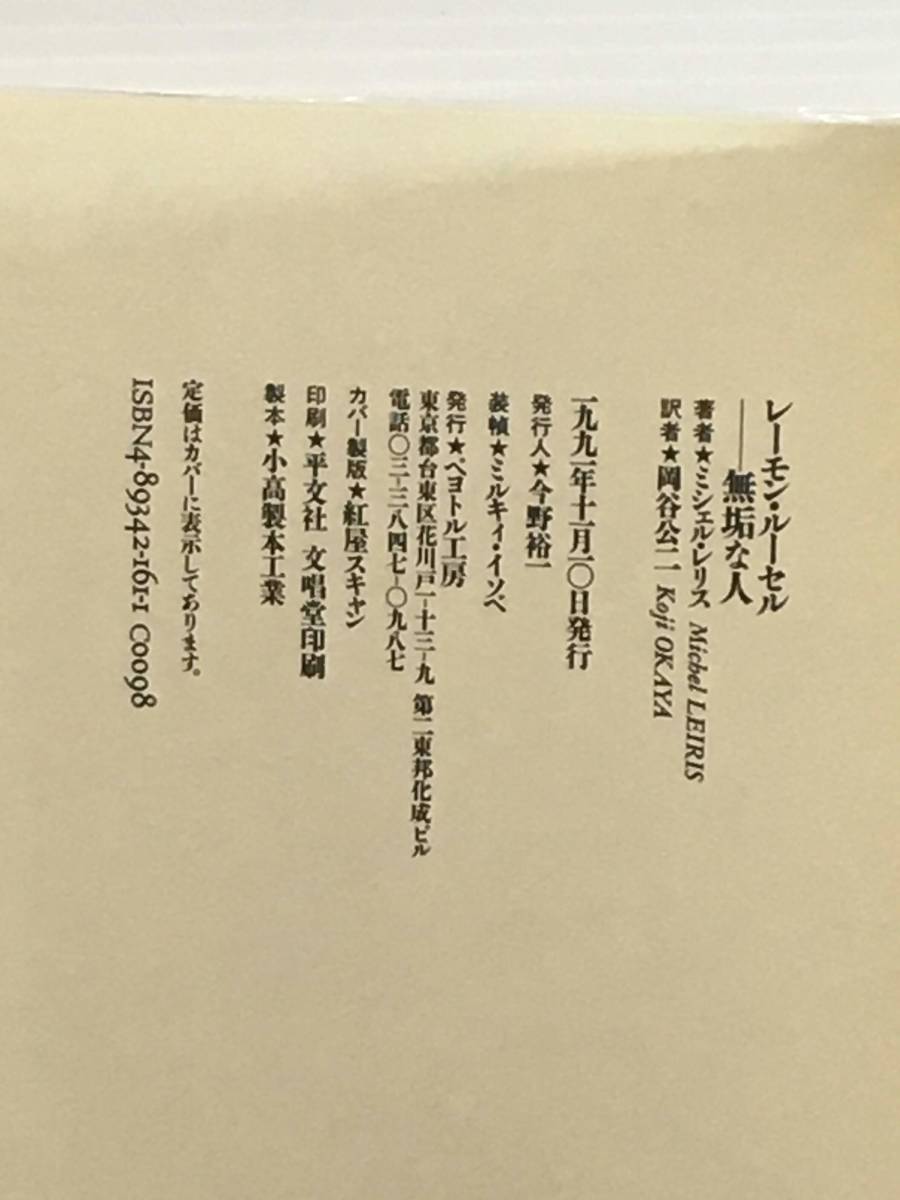 レーモン・ルーセル
──無垢な人
著者★ミシェル・レリス Michel LEIRIS
訳者★岡谷公二 Koji OKAYA
一九九一年十一月一〇日発行
発行人★今野裕一
装幀★ミルキィ・イソベ
発行★ペヨトル工房
東京都台東区花川戸一-十三-九 第二東邦化成ビル
電話〇三-三八四七-〇九八七
カバー製版★紅屋スキャン
印刷★平文社 文唱堂印刷
製本★小高製本工業
定価はカバーに表示してあります。
ISBN4-89342-161-1 C0098